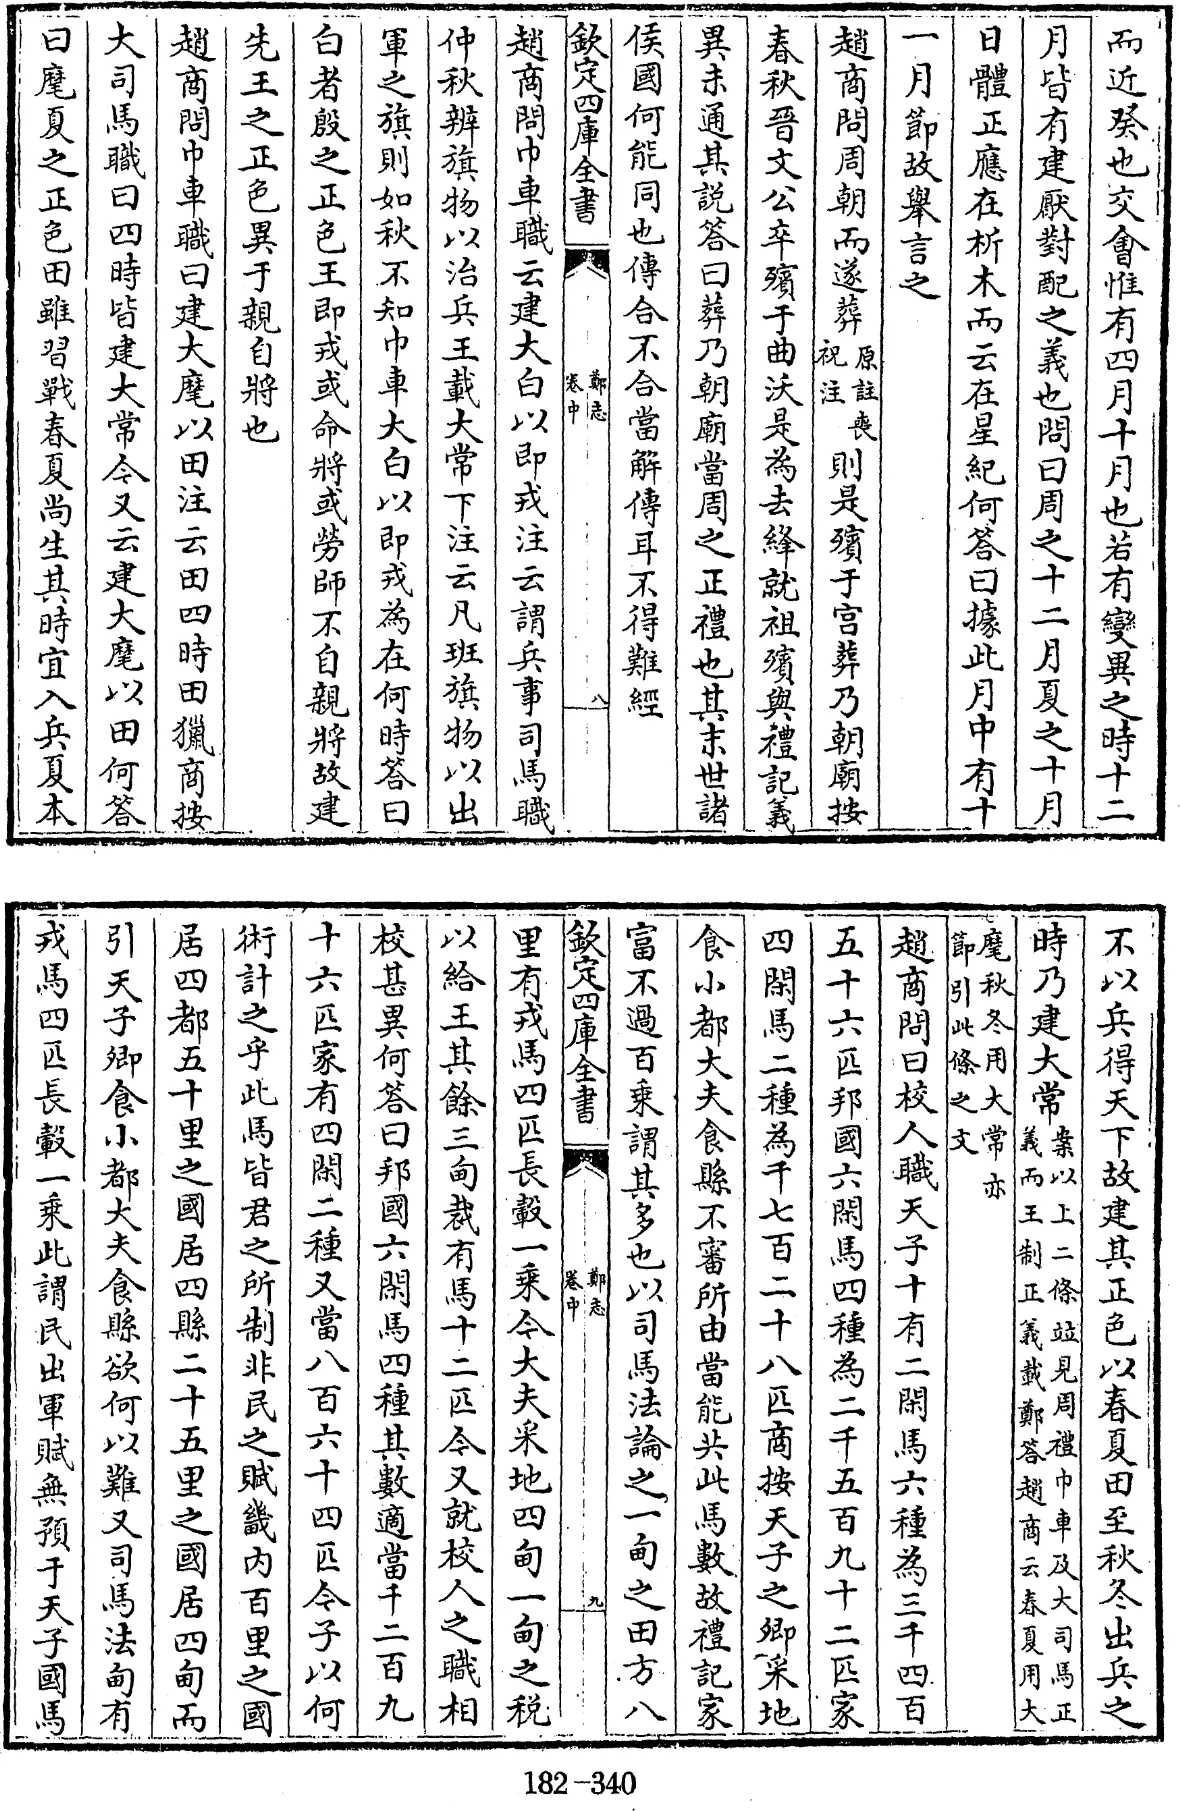 而近癸也交會惟有四月十月也若有變異之時十二
月皆有建厭對配之義也問曰周之十二月夏之十月
日體正應在析木而云在星紀何答曰據此月中有十
一月節故舉言之
趙商問周朝而遂葬原註喪祝注則是殯于宮葬乃朝廟按
春秋晉文公卒殯于曲沃是為去絳就祖殯與禮記義
異未通其說答曰葬乃朝廟當周之正禮也其末世諸
侯國何能同也傳合不合當解傳耳不得難經
欽定四庫全書
鄭志
卷中
八
趙商問巾車職云建大白以即戎注云謂兵事司馬職
仲秋辨旗物以治兵王載大常下注云凡班旗物以出
軍之旗則如秋不知巾車大白以即戎為在何時答曰
白者殷之正色王即戎或命將或勞師不自親將故建
先王之正色異于親自將也
趙商問巾車職曰建大麾以田注云田四時田獵商按
大司馬職曰四時皆建大常今又云建大麾以田何答
曰麾夏之正色田雖習戰春夏尚生其時宜入兵夏本
不以兵得天下故建其正色以春夏田至秋冬出兵之
時乃建大常案以上二條竝見周禮巾車及大司馬正義而王制正義載鄭答趙商云春夏用大
麾秋冬用大常亦節引此條之文
趙商問曰校人職天子十有二閑馬六種為三千四百
五十六匹邦國六閑馬四種為二千五百九十二匹家
四閑馬二種為千七百二十八匹商按天子之卿采地
食小都大夫食縣不審所由當能共此馬數故禮記家
富不過百乘謂其多也以司馬法論之一甸之田方八
欽定四庫全書
鄭志
卷中
九
里有戎馬四匹長轂一乘今大夫采地四甸一甸之稅
以給王其餘三甸裁有馬十二匹今又就校人之職相
校甚異何答曰邦國六閑馬四種其數適當千二百九
十六匹家有四閑二種又當八百六十四匹今子以何
術計之乎此馬皆君之所制非民之賦畿內百里之國
居四都五十里之國居四縣二十五里之國居四甸而
引天子卿食小都大夫食縣欲何以難又司馬法甸有
戎馬四匹長轂一乘此謂民出軍賦無預于天子國馬
182-340